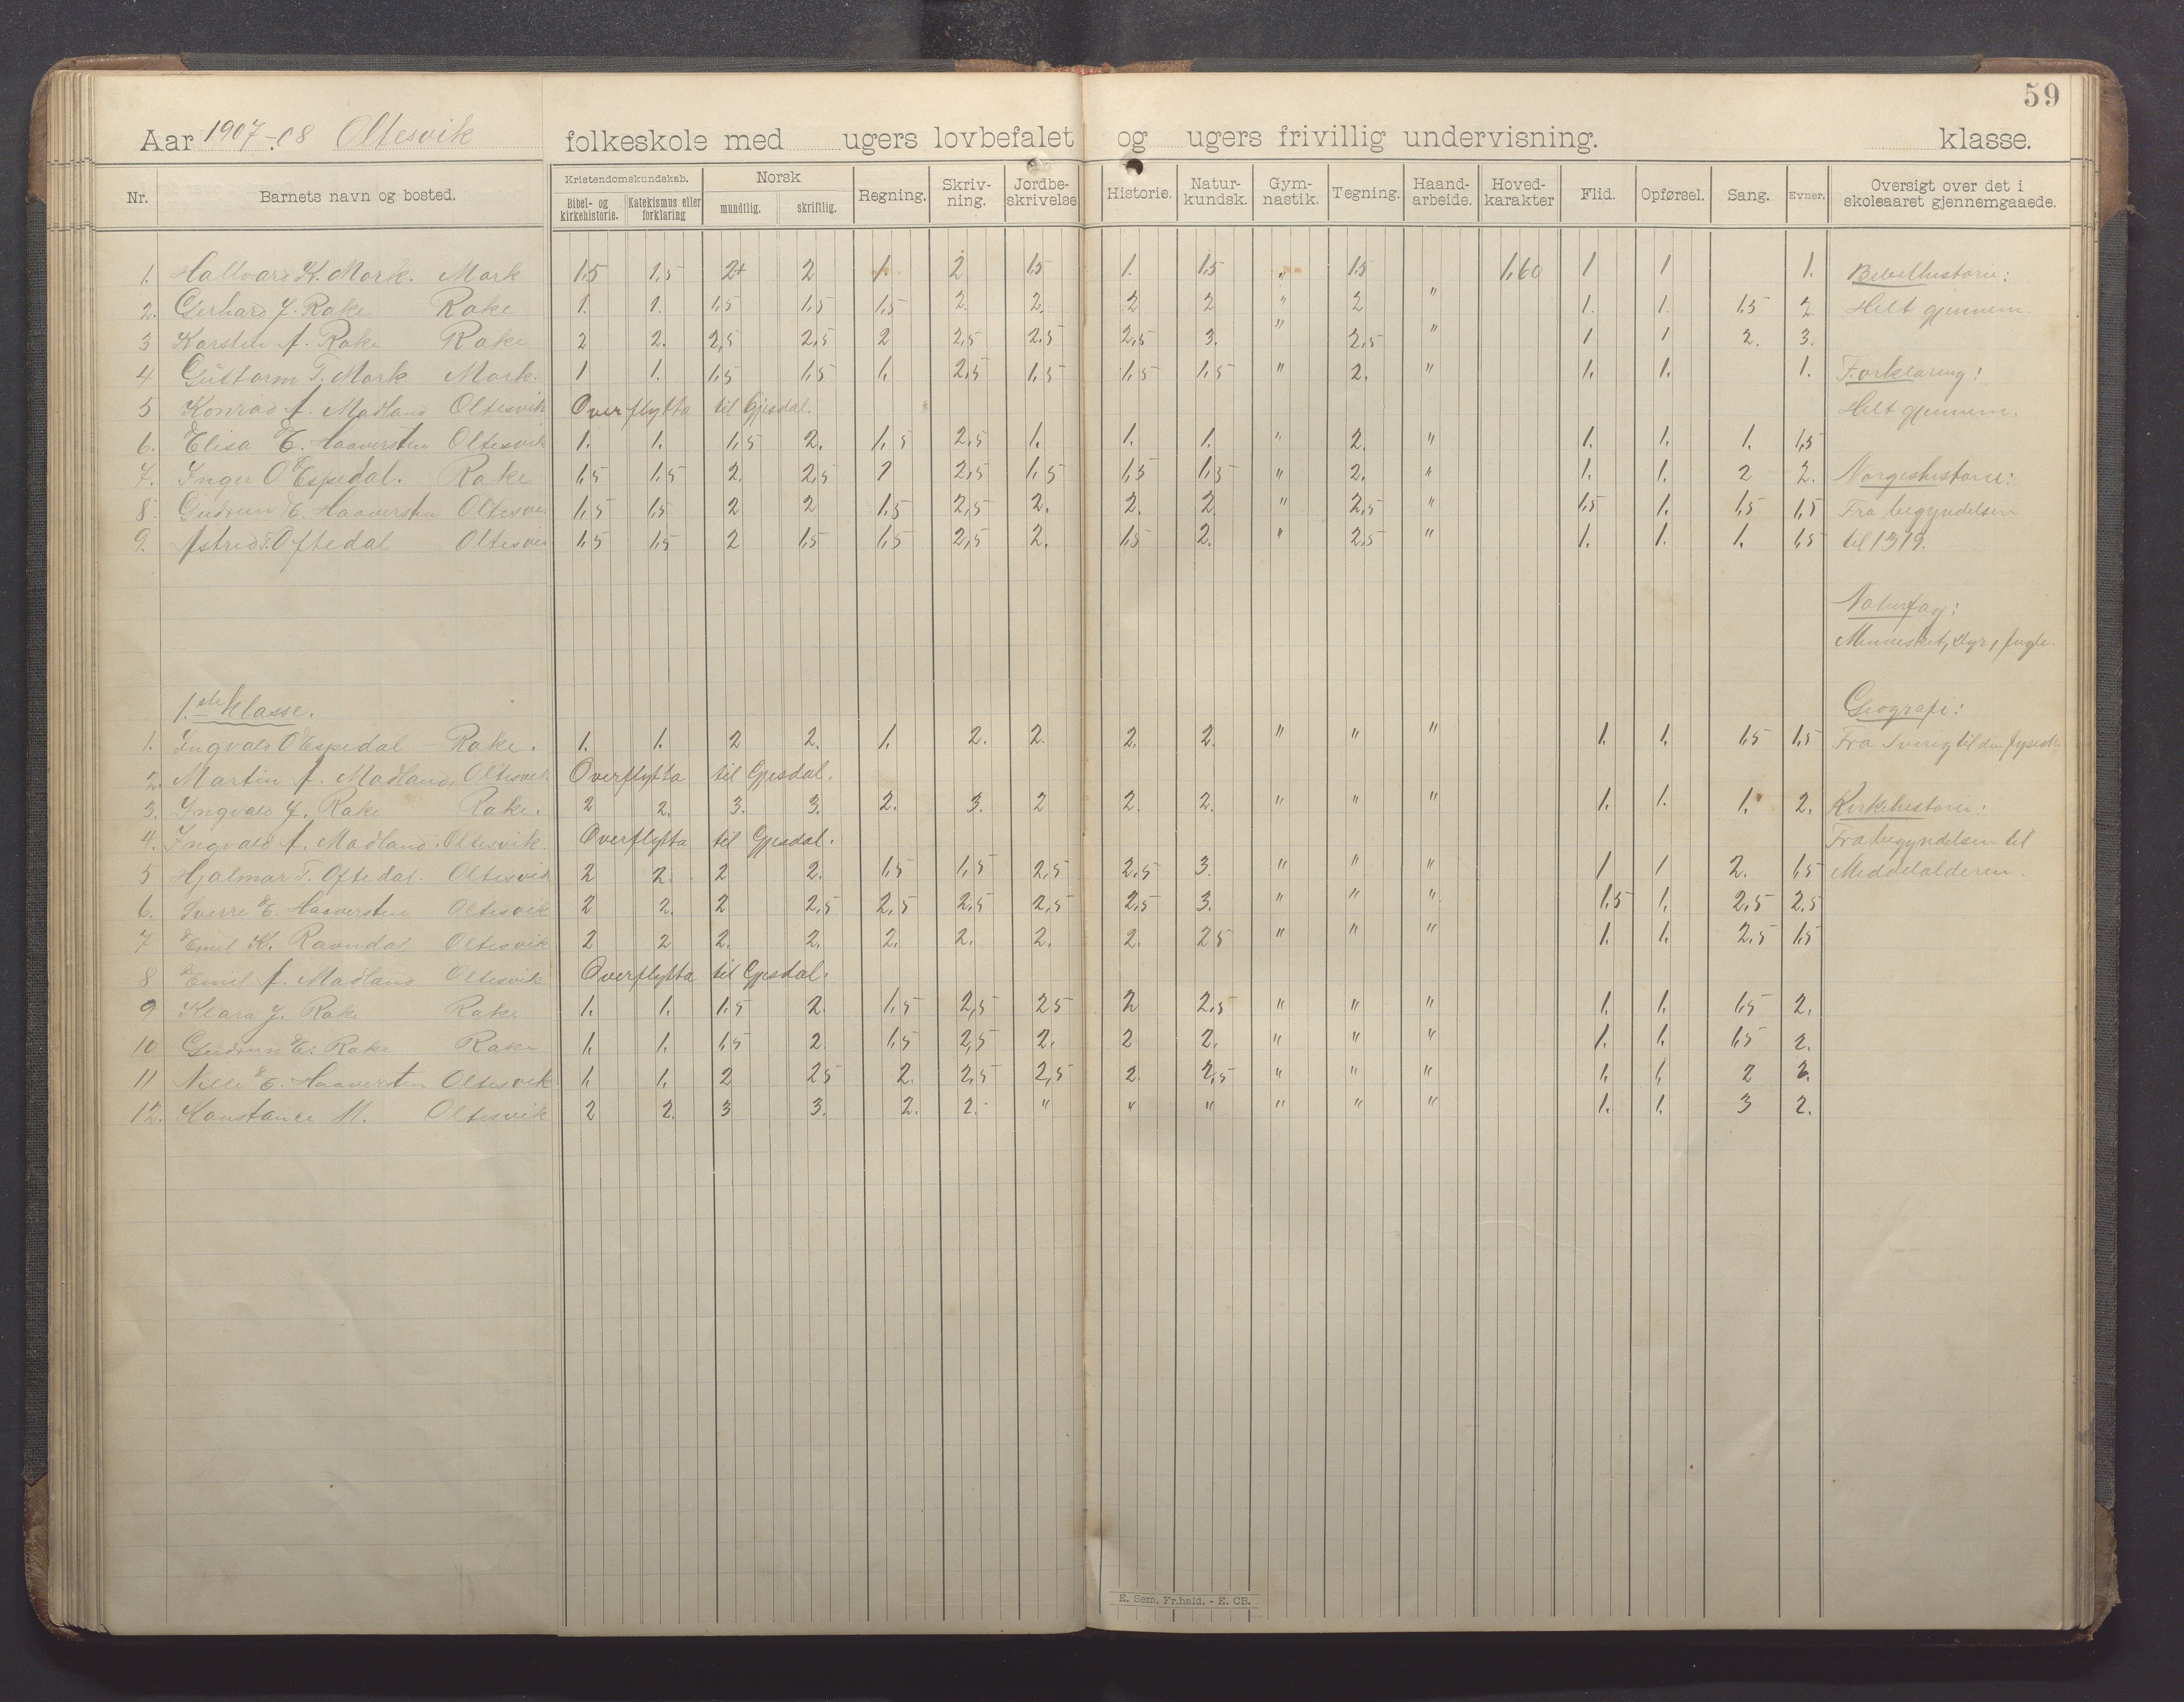 59
Aar 1907-08 Oltesvik folkeskole med ugers lovbefalet og ugers frivillig undervisning. klasse.
Nr. Barnets navn og bosted. Kristendomskundskab. Bibel- og kirkehistorie. Katekismus eller forklaring Norsk mundtlig. skriftlig. Regning. Skriv-ning. Jordbe-skrivelse Historie. Natur-kundsk. Gym-nastik. Tegning. Haand-arbeide. Hoved-karakter Flid. Opførsel. Sang. Evner. Oversigt over det i skoleaaret gjennemgaaede.
1. Hallvard K. Mork. Mork 1,5 1,5 2+ 2 1. 2 1,5 1. 1,5 " 1,5 1,60 1 1 1. Bibelhistorie:
2. Gerhard J. Rake Rake 1. 1. 1,5 1,5 1,5 2. 2. 2 2 " 2 " 1. 1. 1,5 2. Helt gjennem.
3 Karsten A. Rake Rake 2 2. 2,5 2,5 2 2,5 2,5 2,5 3. " 2,5 " 1 1 2. 3.
4 Guttorm T. Mork Mork. 1 1. 1,5 1,5 1. 2,5 1,5 1,5 1,5 " 2. " 1. 1. 1. Forklaring:
5 Konrad A. Madland Oltesvik Overflytta til Gjesdal. Helt gjennem.
6. Elisa E. Haaversten Oltesvik 1. 1. 1,5 2. 1,5 2,5 1. 1. 1. " 2. " 1. 1. 1. 1,5
7. Inger O Espedal. Rake 1,5 1,5 2. 2,5 1 2,5 1,5 1,5 1,5 " 2. " 1. 1. 2 2. Norgeshistorie:
8. Gudrun E. Haaversten Oltesvi 1,5 1,5 2 2 1,5 2,5 2. 2. 2. " 2,5 " 1,5 1. 1,5 1,5 Fra begyndelsen
9. Astrid T. Oftedal Oltesvi 1,5 1,5 2 1,5 1,5 2,5 2. 1,5 2. " 2,5 " 1. 1. 1. 1,5 til 1319.
Naturfag:
Mennesket, dyr, fugle.
1.ste klasse.
Geografi:
1. Ingvald O Espedal - Rake. 1. 1. 2 2. 1. 2. 2. 2. 2. " " " 1. 1. 1,5 1,5 Fra Sverig til den fysiske
2. Martin A. Madland, Oltesvik Overflytta til Gjesdal.
3. Ingvald J. Rake Rake. 2 2. 3. 3. 2. 3. 2 2. 2. " " " 1. 1. 1. 2. Kirkehistorie:
4. Ingvald A. Madland. Oltesvik. Overflytta til Gjesdal. Fra begyndelsen til
5 Hjalmar T. Oftedal. Oltesvik 2 2. 2 2. 1,5 1,5 2,5 2,5 3. " " " 1 1 2. 1,5 Middelalderen.
6. Sverre E. Haaversten Oltesvik 2 2. 2 2,5 2,5 2,5 2,5 2,5 3. " " " 1,5 1. 2,5 2,5
7 Emil K. Ravndal Oltesvik 2 2 2. 2. 2. 2. 2. 2. 25 " " " 1. 1. 2.5 1,5
8 Emil A. Madland Oltesvik Overflytta til Gjesdal.
9 Klara J. Rake Rake 1. 1. 1,5 2. 1,5 2,5 25 2 2,5 " " " 1. 1. 1,5 2.
10 Gudrun E. Rake Rake 1. 1. 1,5 2 1,5 2,5 2. 2 2. " " " 1. 1. 1,5 2.
11 Nelli E. Haaversten Oltesvik 1. 1. 2 25 2. 2,5 2,5 2. 2,5 " " " 1. 1. 2 2.
12. Konstance M. Oltesvik 2 2. 3 3. 2. 2. " " " " " " 1. 1. 3 2.
E. Sem, Fr.hald. - E. CB.